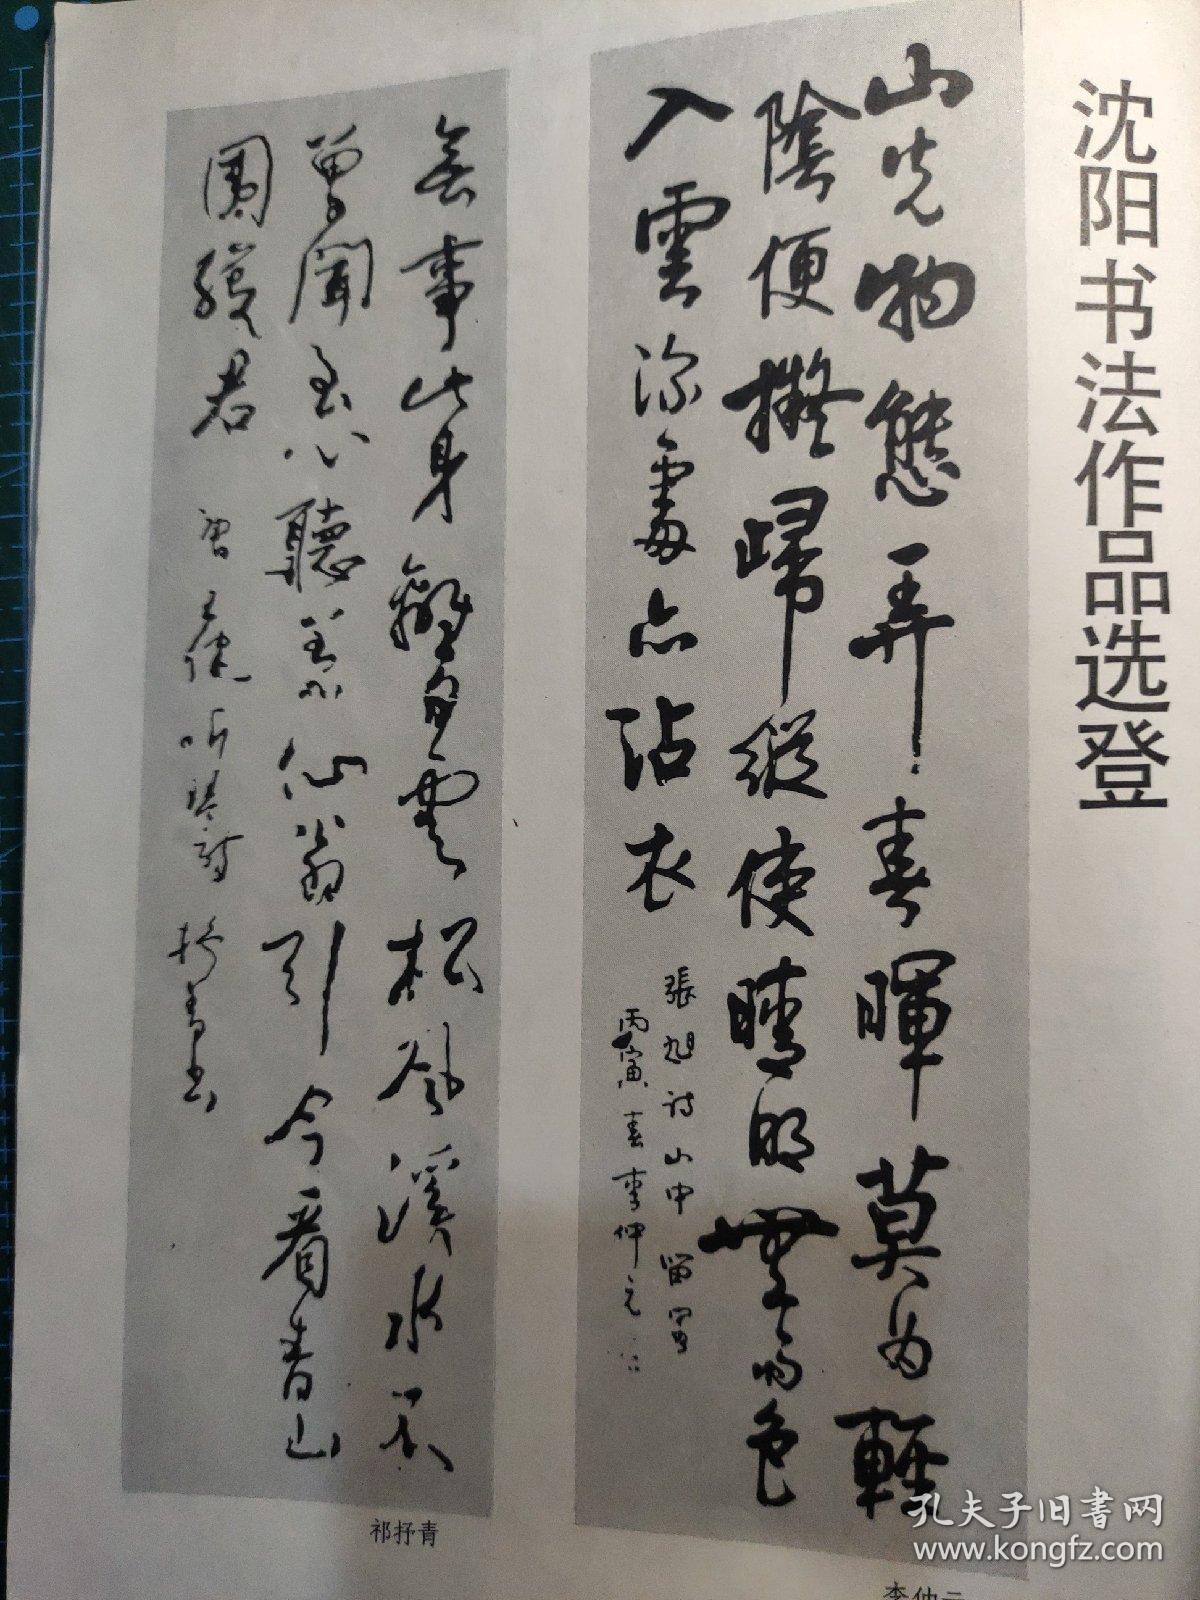 沈阳书法作品选登
山光物態弄春暉莫为輕
陰便擬歸縱使晴明無雨色
入雲深處亦沾衣
張旭詩山中留客
丙寅春李仲元
無事此身離白雲松風溪水不
曾聞至心聽著仙翁引今看青山
圍繞君 唐王建听琴詩 抒青书
祁抒青
李仲元
孔夫子旧书网
www.kongfz.com